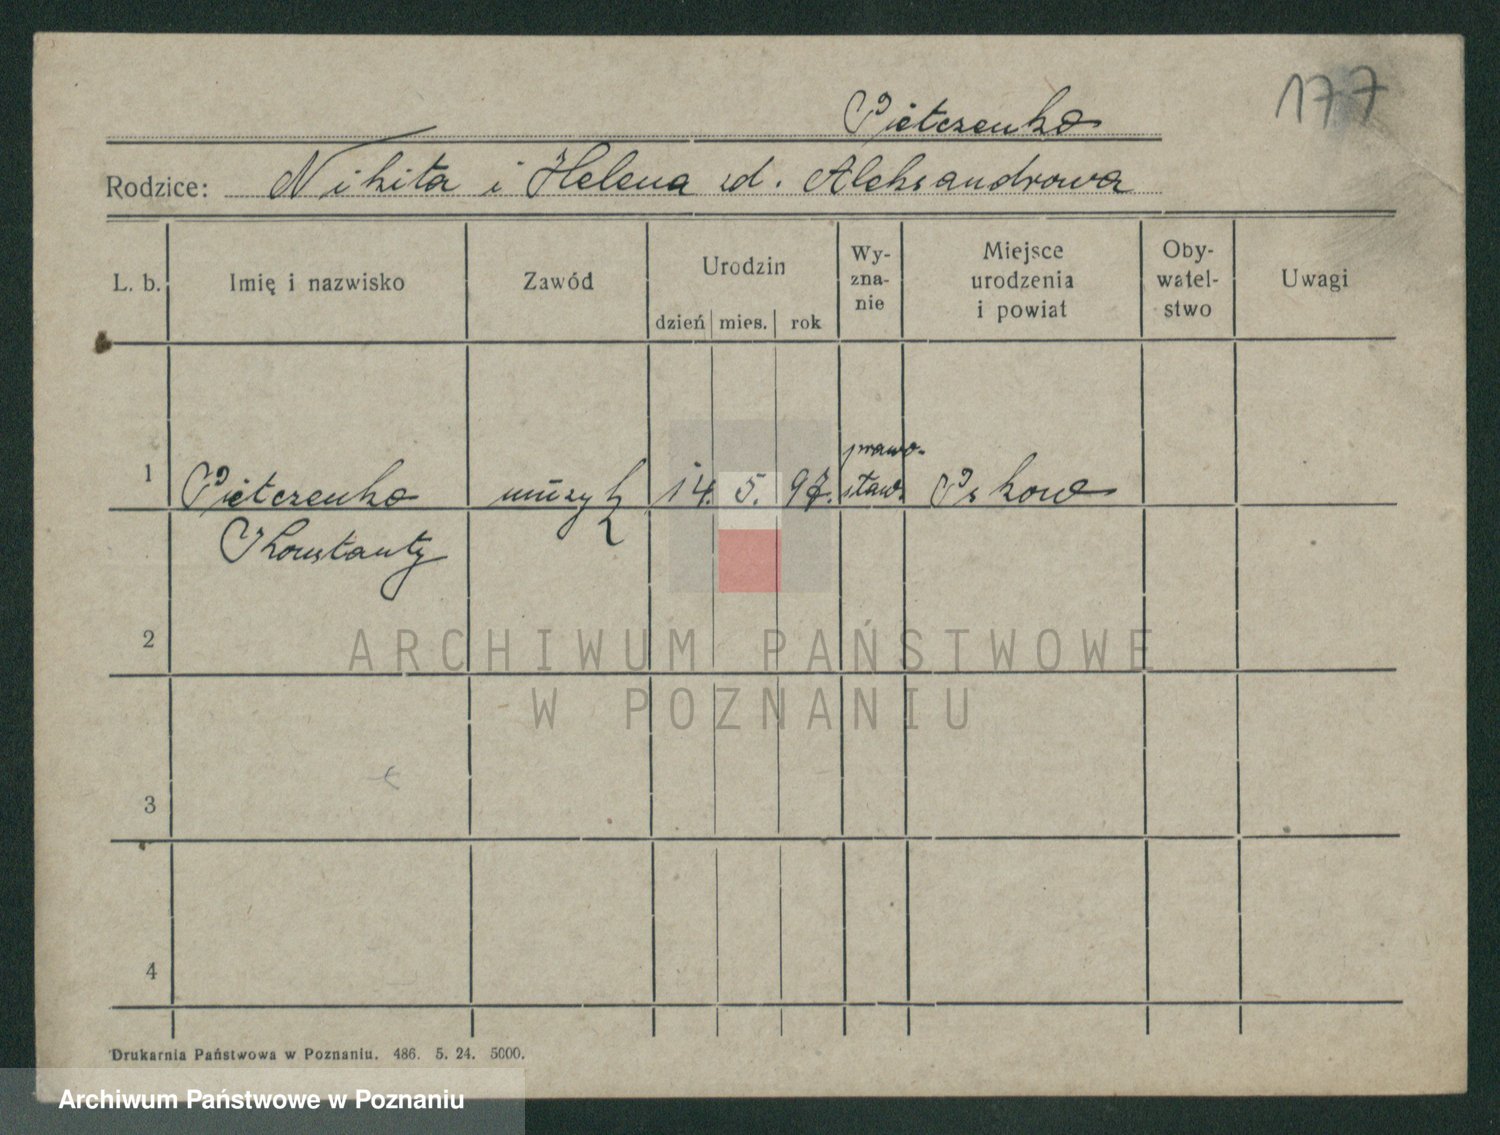 177
Pietczenko
Rodzice: Nikita i Helena zd. Aleksandrowa
L. b. Imię i nazwisko Zawód Urodzin dzień mies. rok Wy-zna-nie Miejsce urodzenia i powiat Oby-watel-stwo Uwagi
1 Pietczenko muzyk 14. 5. 97. prawo-sław. Pskow
Konstanty
2
3
4
Drukarnia Państwowa w Poznaniu. 486. 5. 24. 5000.
ARCHIWUM PAŃSTWOWE
W POZNANIU
Archiwum Państwowe w Poznaniu